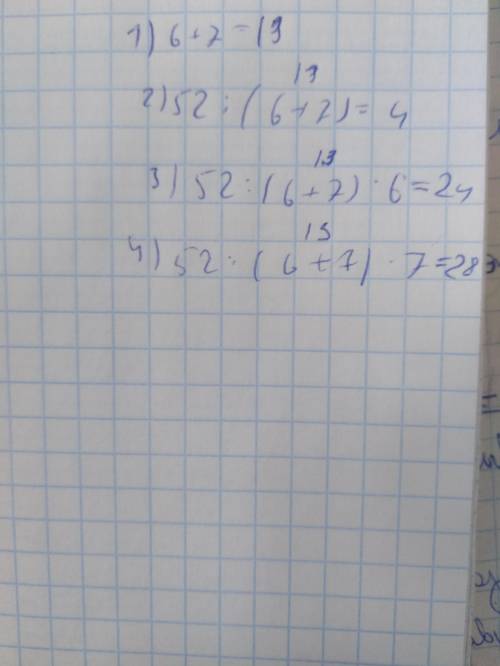 1) 6+7=13
13
2) 52:(6+7)=4
13
3) 52:(6+7)·6=24
13
4) 52:(6+7)·7=28